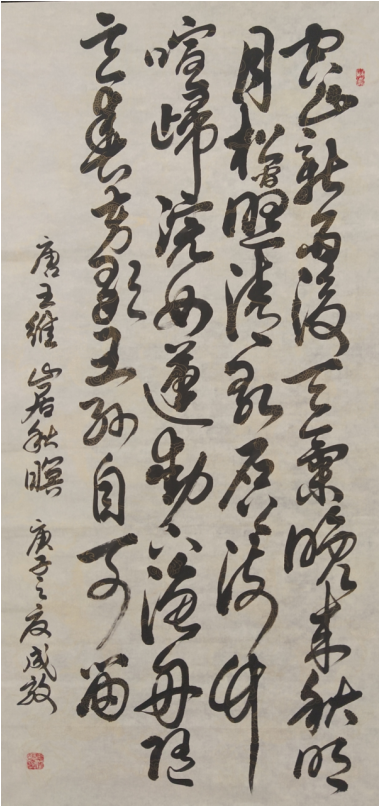 空山新雨後天氣晚來秋明
月松間照清泉石上流竹
喧歸浣女蓮動下漁舟隨
意春芳歇王孫自可留
唐王維山居秋暝 庚子之夏成